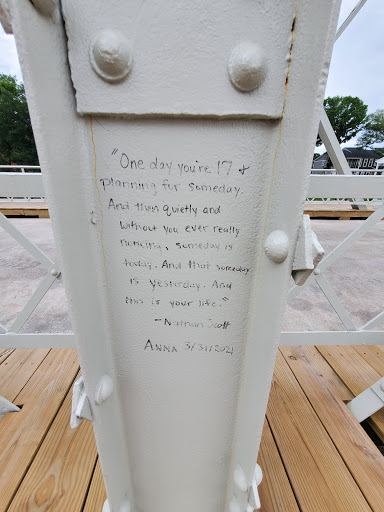 "One day you're 17 &
planning for someday.
And then quietly and
without you ever really
noticing, someday is
today. And that someday
is yesterday. And
this is your life."
- Nathan Scott
ANNA 3/31/2021